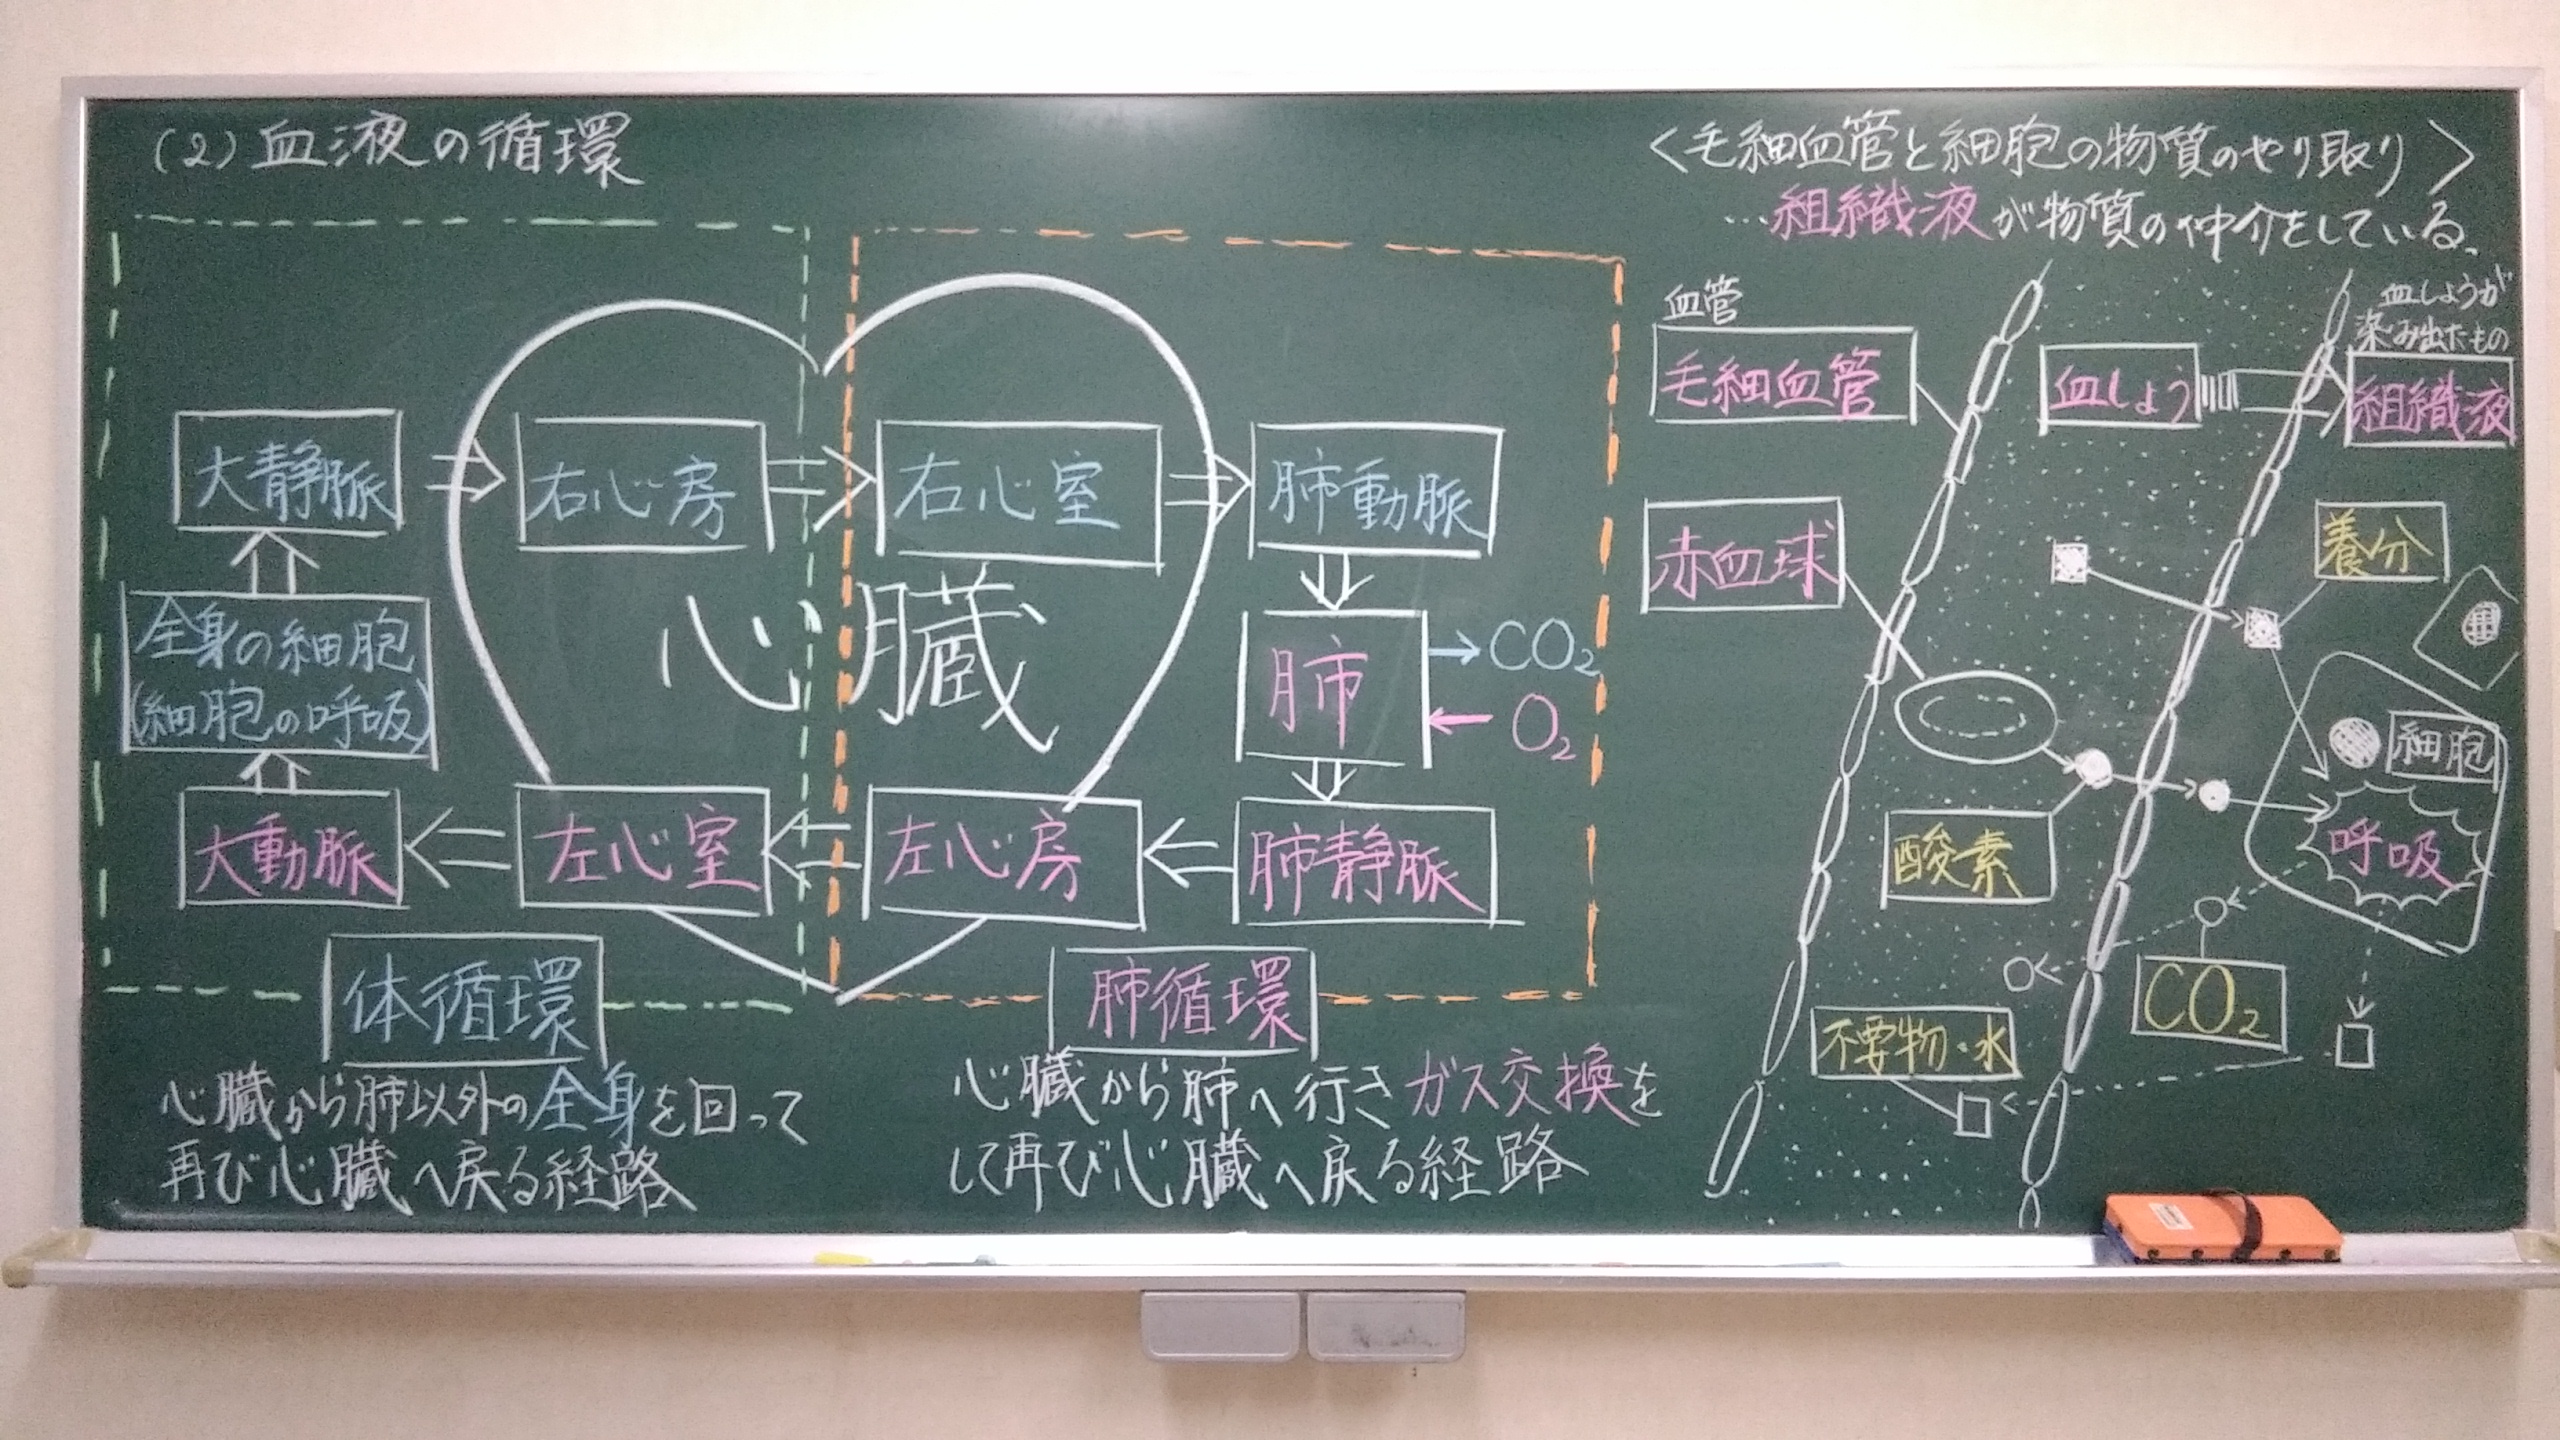 (2)血液の循環
大静脈
右心房
右心室
肺動脈
心臓
全身の細胞
(細胞の呼吸)
肺
CO₂
O₂
大動脈
左心室
左心房
肺静脈
体循環
心臓から肺以外の全身を回って
再び心臓へ戻る経路
肺循環
心臓から肺へ行きガス交換を
して再び心臓へ戻る経路
<毛細血管と細胞の物質のやり取り>
…組織液が物質の仲介をしている。
血管
毛細血管
血しょう
血しょうが
染み出たもの
組織液
赤血球
養分
細胞
呼吸
酸素
CO₂
不要物・水